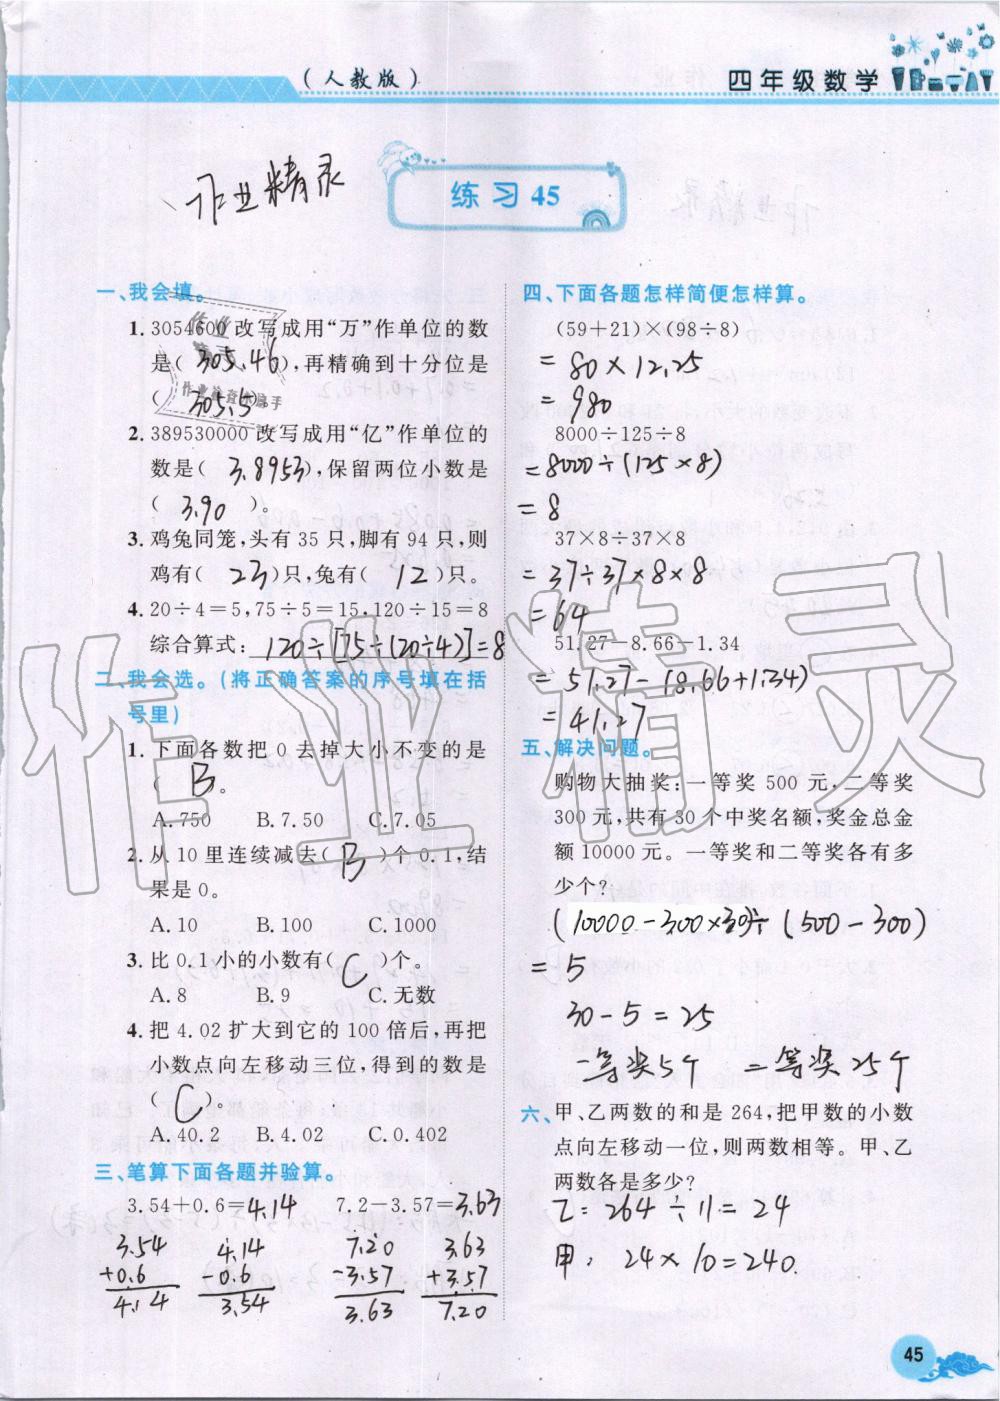 (人教版)
四年级数学
作业精灵
练习 45
一、我会填。
1. 3054600 改写成用“万”作单位的数
是( 305.46 ),再精确到十分位是
( 305.5
2. 389530000 改写成用“亿”作单位的
数是( 3.8953 ),保留两位小数是
( 3.90 )。
3. 鸡兔同笼,头有 35 只,脚有 94 只,则
鸡有( 23 )只,兔有( 12 )只。
4. 20÷4=5,75÷5=15.120÷15=8
综合算式: 120÷[75÷(20÷4)]=8
二、我会选。(将正确答案的序号填在括
号里)
1. 下面各数把 0 去掉大小不变的是
( B 。
A. 750 B. 7.50 C. 7.05
2. 从 10 里连续减去( B )个 0.1,结
果是 0。
A. 10 B. 100 C. 1000
3. 比 0.1 小的小数有( C )个。
A. 8 B. 9 C. 无数
4. 把 4.02 扩大到它的 100 倍后,再把
小数点向左移动三位,得到的数是
( C )。
A. 40.2 B. 4.02 C. 0.402
三、笔算下面各题并验算。
3.54+0.6=4.14 7.2-3.57=3.63
3.54 4.14 7.20 3.63
+0.6 -0.6 -3.57 +3.57
4.14 3.54 3.63 7.20
四、下面各题怎样简便怎样算。
(59+21)×(98÷8)
= 80×12.25
= 980
8000÷125÷8
=8000÷(125×8)
= 8
37×8÷37×8
= 37÷37×8×8
= 64
51.27-8.66-1.34
= 51.27-(8.66+1.34)
= 41.27
五、解决问题。
购物大抽奖:一等奖 500 元,二等奖
300 元,共有 30 个中奖名额,奖金总金
额 10000 元。一等奖和二等奖各有多
少个?
(10000-300×30)÷(500-300)
= 5
30-5=25
一等奖5个 二等奖25个
六、甲、乙两数的和是 264,把甲数的小数
点向左移动一位,则两数相等。甲、乙
两数各是多少?
乙=264÷11=24
甲: 24×10=240.
45
作业精灵